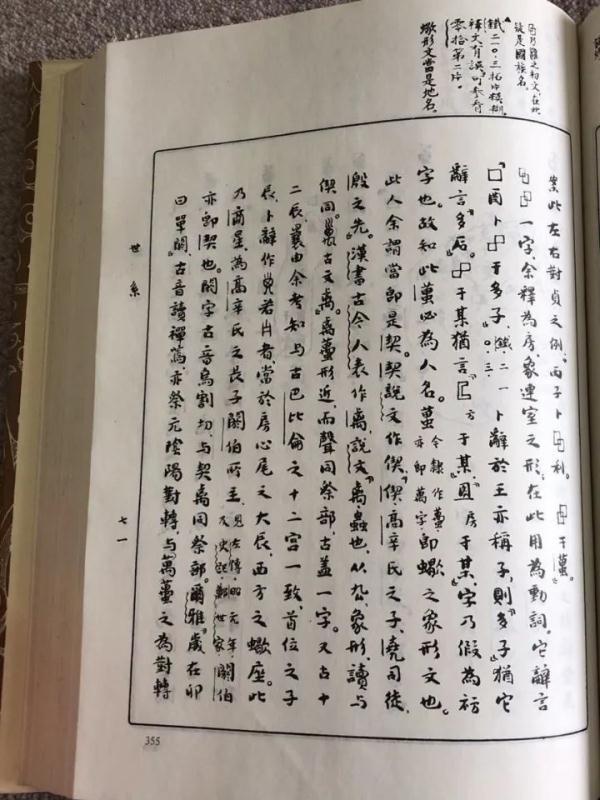 乃雍之初文,在此
殆是國族名。
鐵二一〇.三拓片模糊,
釋文有誤,可參看
零拾第二片。
蠍形文當是地名。
案此左右對貞之例,丙子卜利。于萬。
一字,余釋為房,象連室之形,在此用為動詞。它辭言
『□酉卜于多子』鐵二一〇.三.卜辭於王亦稱子,則『多子』猶它
辭言『多后』。于某猶言『匚方于某』『房于某』字乃假為祊
字也。故知此萬必為人名。萬今隸作蠆亦即萬字,即蠍之象形文也。
此人余謂當即是契。契說文作偰,『偰,高辛氏之子,堯司徒,
殷之先』。漢書古今人表作禼,說文『禼,蟲也,从厹,象形,讀與
偰同。古文禼』。禼蠆形近而聲同祭部,古蓋一字。又古十
二辰,曩由余考知與古巴比倫之十二宮一致,首位之子
辰,卜辭作若者,當於房心尾之大辰,西方之蠍座。此
乃商星,為高辛氏之長子閼伯所主,見左傳昭元年及史記鄭世家閼伯
亦即契也。閼字古音烏割切,與契禼同祭部。爾雅『歲在卯
曰單閼』,古音讀禪蔫,亦祭元陰陽對轉,與萬蠆之為對轉
世系
七一
355